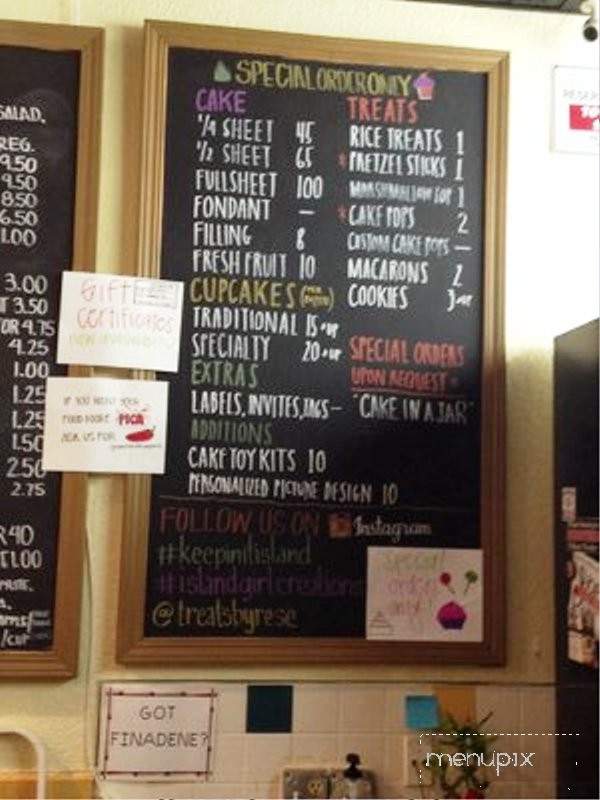 SALAD,
REG.
9.50
9.50
8.50
6.50
1.00
3.00
3.50
OR 4.75
4.25
1.00
1.25
1.25
1.50
2.50
2.75
1.00
/CUP
SPECIAL ORDER ONLY
CAKE
1/4 SHEET 45
1/2 SHEET 65
FULLSHEET 100
FONDANT —
FILLING 8
FRESH FRUIT 10
CUPCAKES (PER DOZEN)
TRADITIONAL 15 + UP
SPECIALTY 20 + UP
EXTRAS
LABELS, INVITES, TAGS —
ADDITIONS
CAKE TOY KITS 10
PERSONALIZED PICTURE DESIGN 10
TREATS
RICE TREATS 1
* PRETZEL STICKS 1
MARSHMALLOW POP 1
* CAKE POPS 2
CUSTOM CAKE POPS —
MACARONS 2
COOKIES 3 + UP
SPECIAL ORDERS
UPON REQUEST *
"CAKE IN A JAR"
FOLLOW US ON Instagram
#keepinitisland
#islandgirlcreations
@treatsbyrese
special
orders
only!
GIFT
certificates
now available!
IF YOU WANT YOUR
FOOD MORE PICA
ASK US FOR
GOT
FINADENE?
menupix